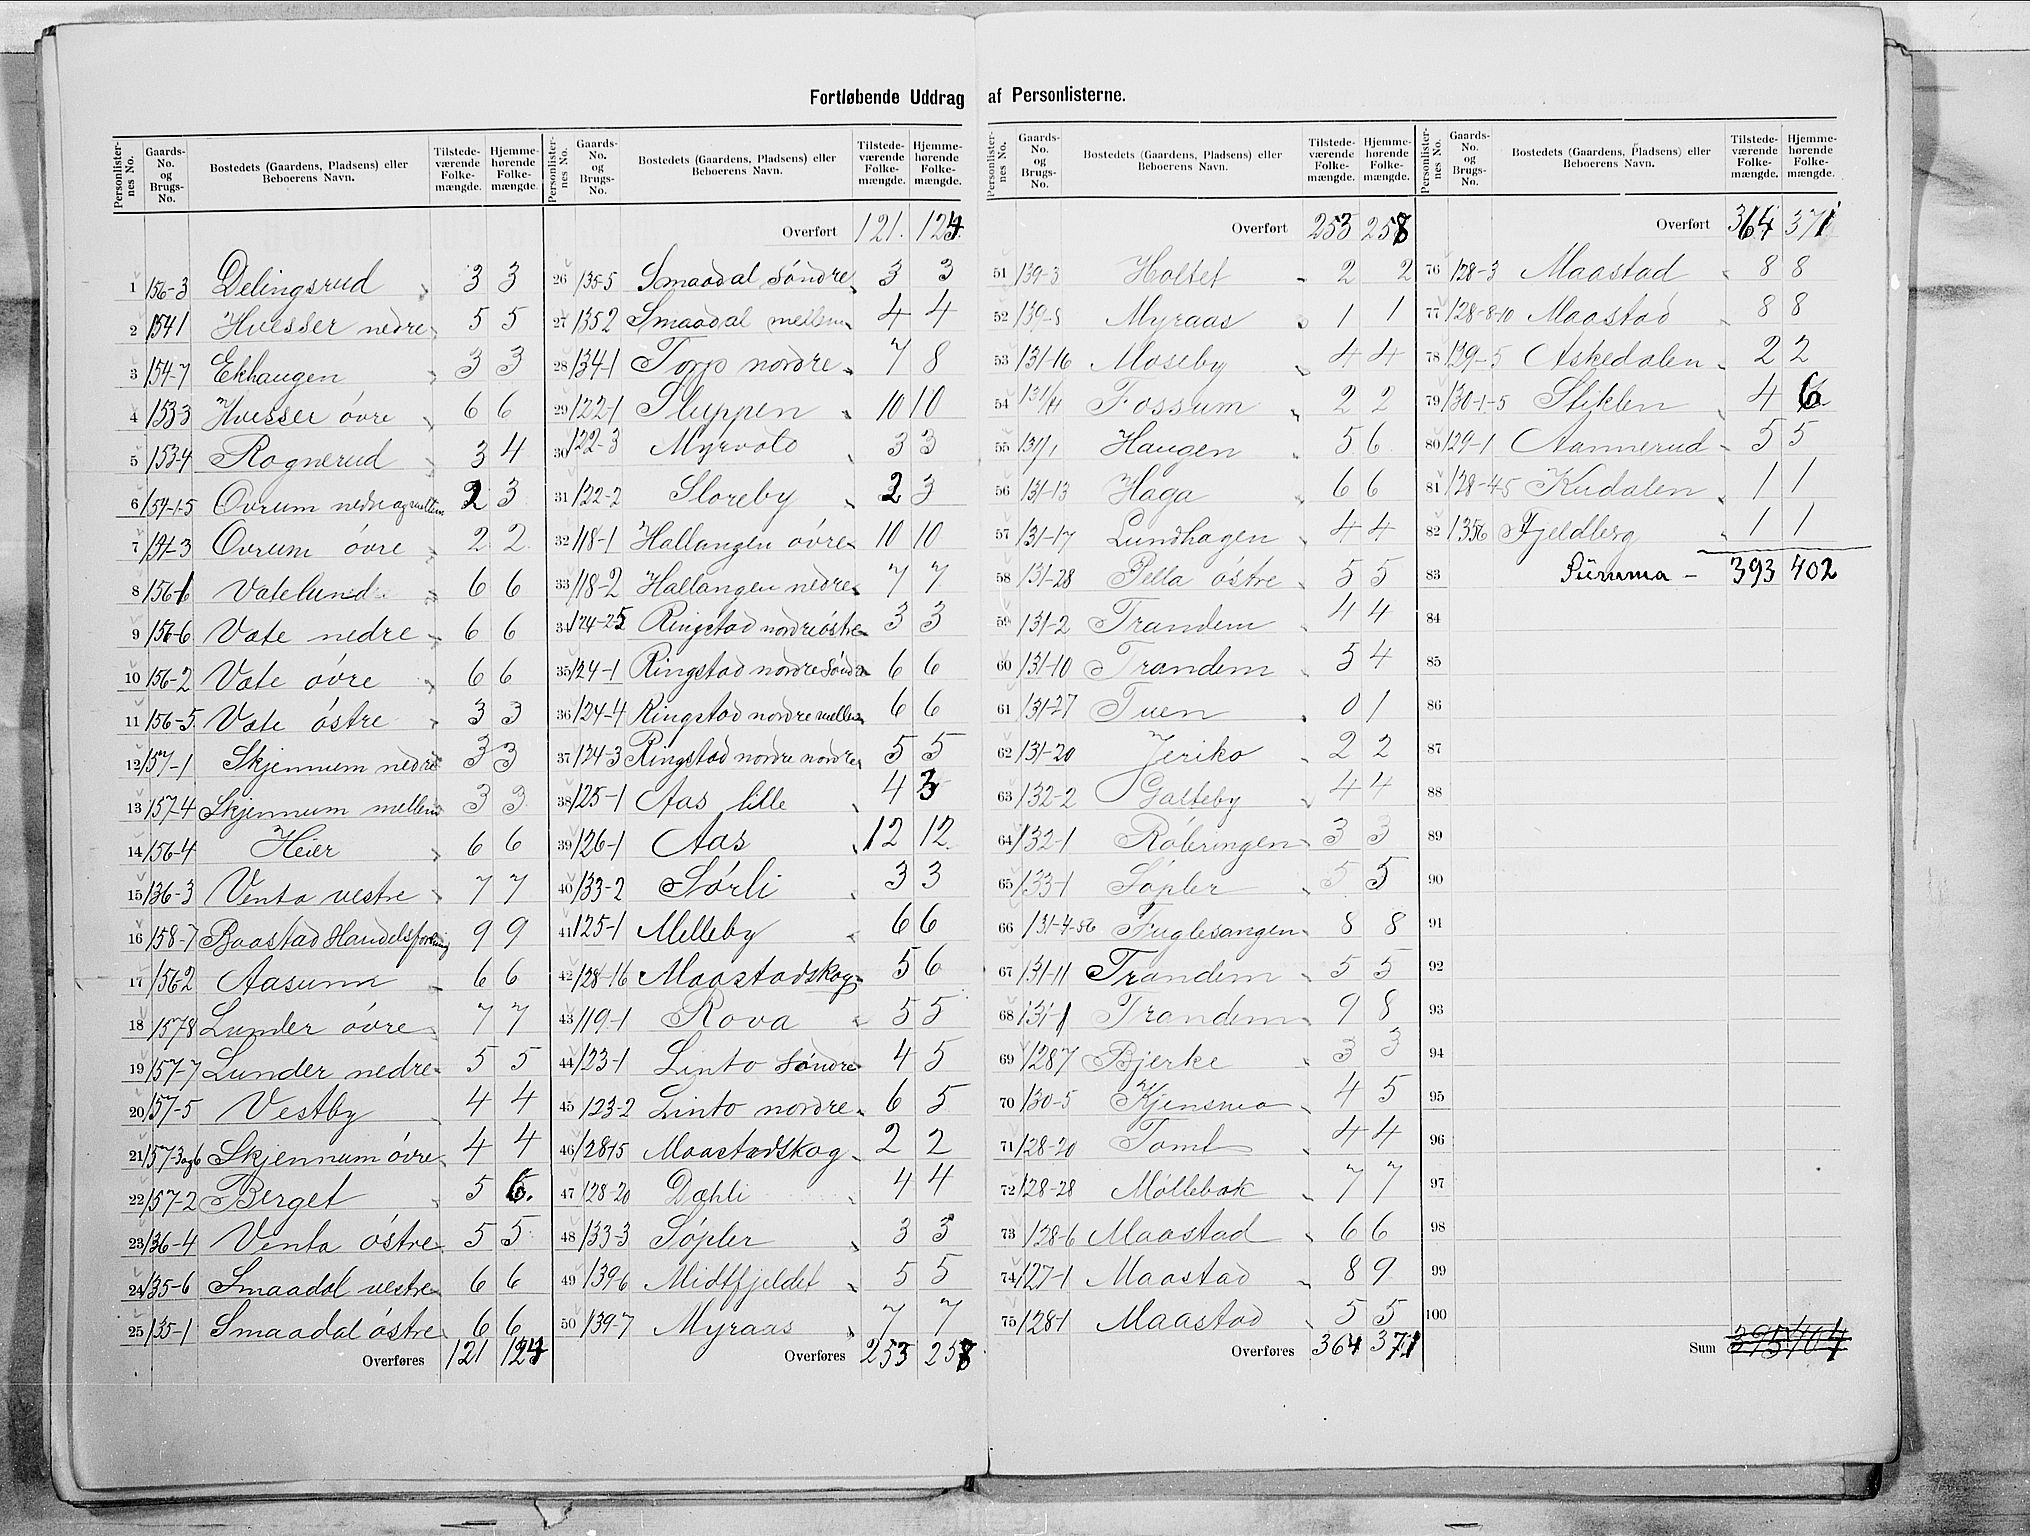 Fortløbende Uddrag af Personlisterne.
Personlister-nes No. Gaards-No. og Brugs-No. Bostedets (Gaardens, Pladsens) eller Beboerens Navn. Tilstede-værende Folke-mængde. Hjemme-hørende Folke-mængde.
1 156-3 Delingsrud 3 3
2 154 1 Hvesser nedre 5 5
3 154-7 Ekhaugen 3 3
4 153 3 Hvesser övre 6 6
5 153-4 Rognerud 3 4
6 154-1-5 Ovrum nedre og mellem 2 3
7 154-3 Ovrum övre 2 2
8 156-1 Vatelund 6 6
9 156-6 Vate nedre 6 6
10 156-2 Vate övre 6 6
11 156-5 Vate östre 3 3
12 157-1 Skjennum nedre 3 3
13 157-4 Skjennum mellem 3 3
14 156-4 Heier 6 6
15 136-3 Venta vestre 7 7
16 158-7 Baastad Handelsforening 9 9
17 156 2 Aasumn 6 6
18 157 8 Lunder övre 7 7
19 157-7 Lunder nedre 5 5
20 157-5 Vestby 4 4
21 157-3og6 Skjennum övre 4 4
22 157-2 Berget 5 6.
23 136-4 Venta östre 5 5
24 135-6 Smaadal vestre 6 6
25 135-1 Smaadal östre 6 6
Overføres 121 124
Personlister-nes No. Gaards-No. og Brugs-No. Bostedets (Gaardens, Pladsens) eller Beboerens Navn. Tilstede-værende Folke-mængde. Hjemme-hørende Folke-mængde.
Overført 121. 124.
26 135-5 Smaadal söndre 3 3
27 135 2 Smaadal mellem 4 4
28 134-1 Torp nordre 7 8
29 122-1 Sluppen 10 10
30 122-3 Myrvold 3 3
31 122-2 Sloreby 2 3
32 118-1 Hallangen övre 10 10
33 118-2 Hallangen nedre 7 7
34 124-25 Ringstad nordre östre 3 3
35 124-1 Ringstad nordre söndre 6 6
36 124-4 Ringstad nordre mellem 6 6
37 124-3 Ringstad nordre nordre 5 5
38 125-1 Aas lille 4 3
39 126-1 Aas 12 12
40 133-2 Sörli 3 3
41 125-1 Melleby 6 6
42 128-16 Maastadskog 5 6
43 119-1 Rova 5 5
44 123-1 Linto söndre 4 5
45 123-2 Linto nordre 6 5
46 128 15 Maastadskog 2 2
47 128-20 Dæhli 4 4
48 133-3 Söpler 3 3
49 139 6 Midtfjeldet 5 5
50 139-7 Myraas 7 7
Overføres 253 258
Personlister-nes No. Gaards-No. og Brugs-No. Bostedets (Gaardens, Pladsens) eller Beboerens Navn. Tilstede-værende Folke-mængde. Hjemme-hørende Folke-mængde.
Overført 253 258
51 139-3 Holtet 2 2
52 139-8 Myraas 1 1
53 131-16 Moseby 4 4
54 131/11 Fossum 2 2
55 131/1 Haugen 5 6
56 131-13 Haga 6 6
57 131-17 Lundhagen 4 4
58 131-28 Pella östre 5 5
59 131-2 Trandem 4 4
60 131-10 Trandem 5 4
61 131-27 Tuen 0 1
62 131-20 Jeriko 2 2
63 132-2 Galteby 4 4
64 132-1 Röbringen 3 3
65 133-1 Söpler 5 5
66 131-4-56 Fuglesangen 8 8
67 131-11 Trandem 5 5
68 131-1 Trandem 9 8
69 128 7 Bjerke 3 3
70 130-5 Kjensmo 4 5
71 128-20 Tomt 4 4
72 128-28 Möllebak 7 7
73 128-6 Maastad 6 6
74 127-1 Maastad 8 9
75 128-1 Maastad 5 5
Overføres 364 371
Personlister-nes No. Gaards-No. og Brugs-No. Bostedets (Gaardens, Pladsens) eller Beboerens Navn. Tilstede-værende Folke-mængde. Hjemme-hørende Folke-mængde.
Overført 364 371
76 128-3 Maastad 8 8
77 128-8-10 Maastad 8 8
78 139-5 Askedalen 2 2
79 130-1-5 Stiklen 4 6
80 129-1 Aannerud 5 5
81 128-45 Kudalen 1 1
82 135 6 Fjeldberg 1 1
83 Summa - 393 402
84
85
86
87
88
89
90
91
92
93
94
95
96
97
98
99
100
Sum 395 404